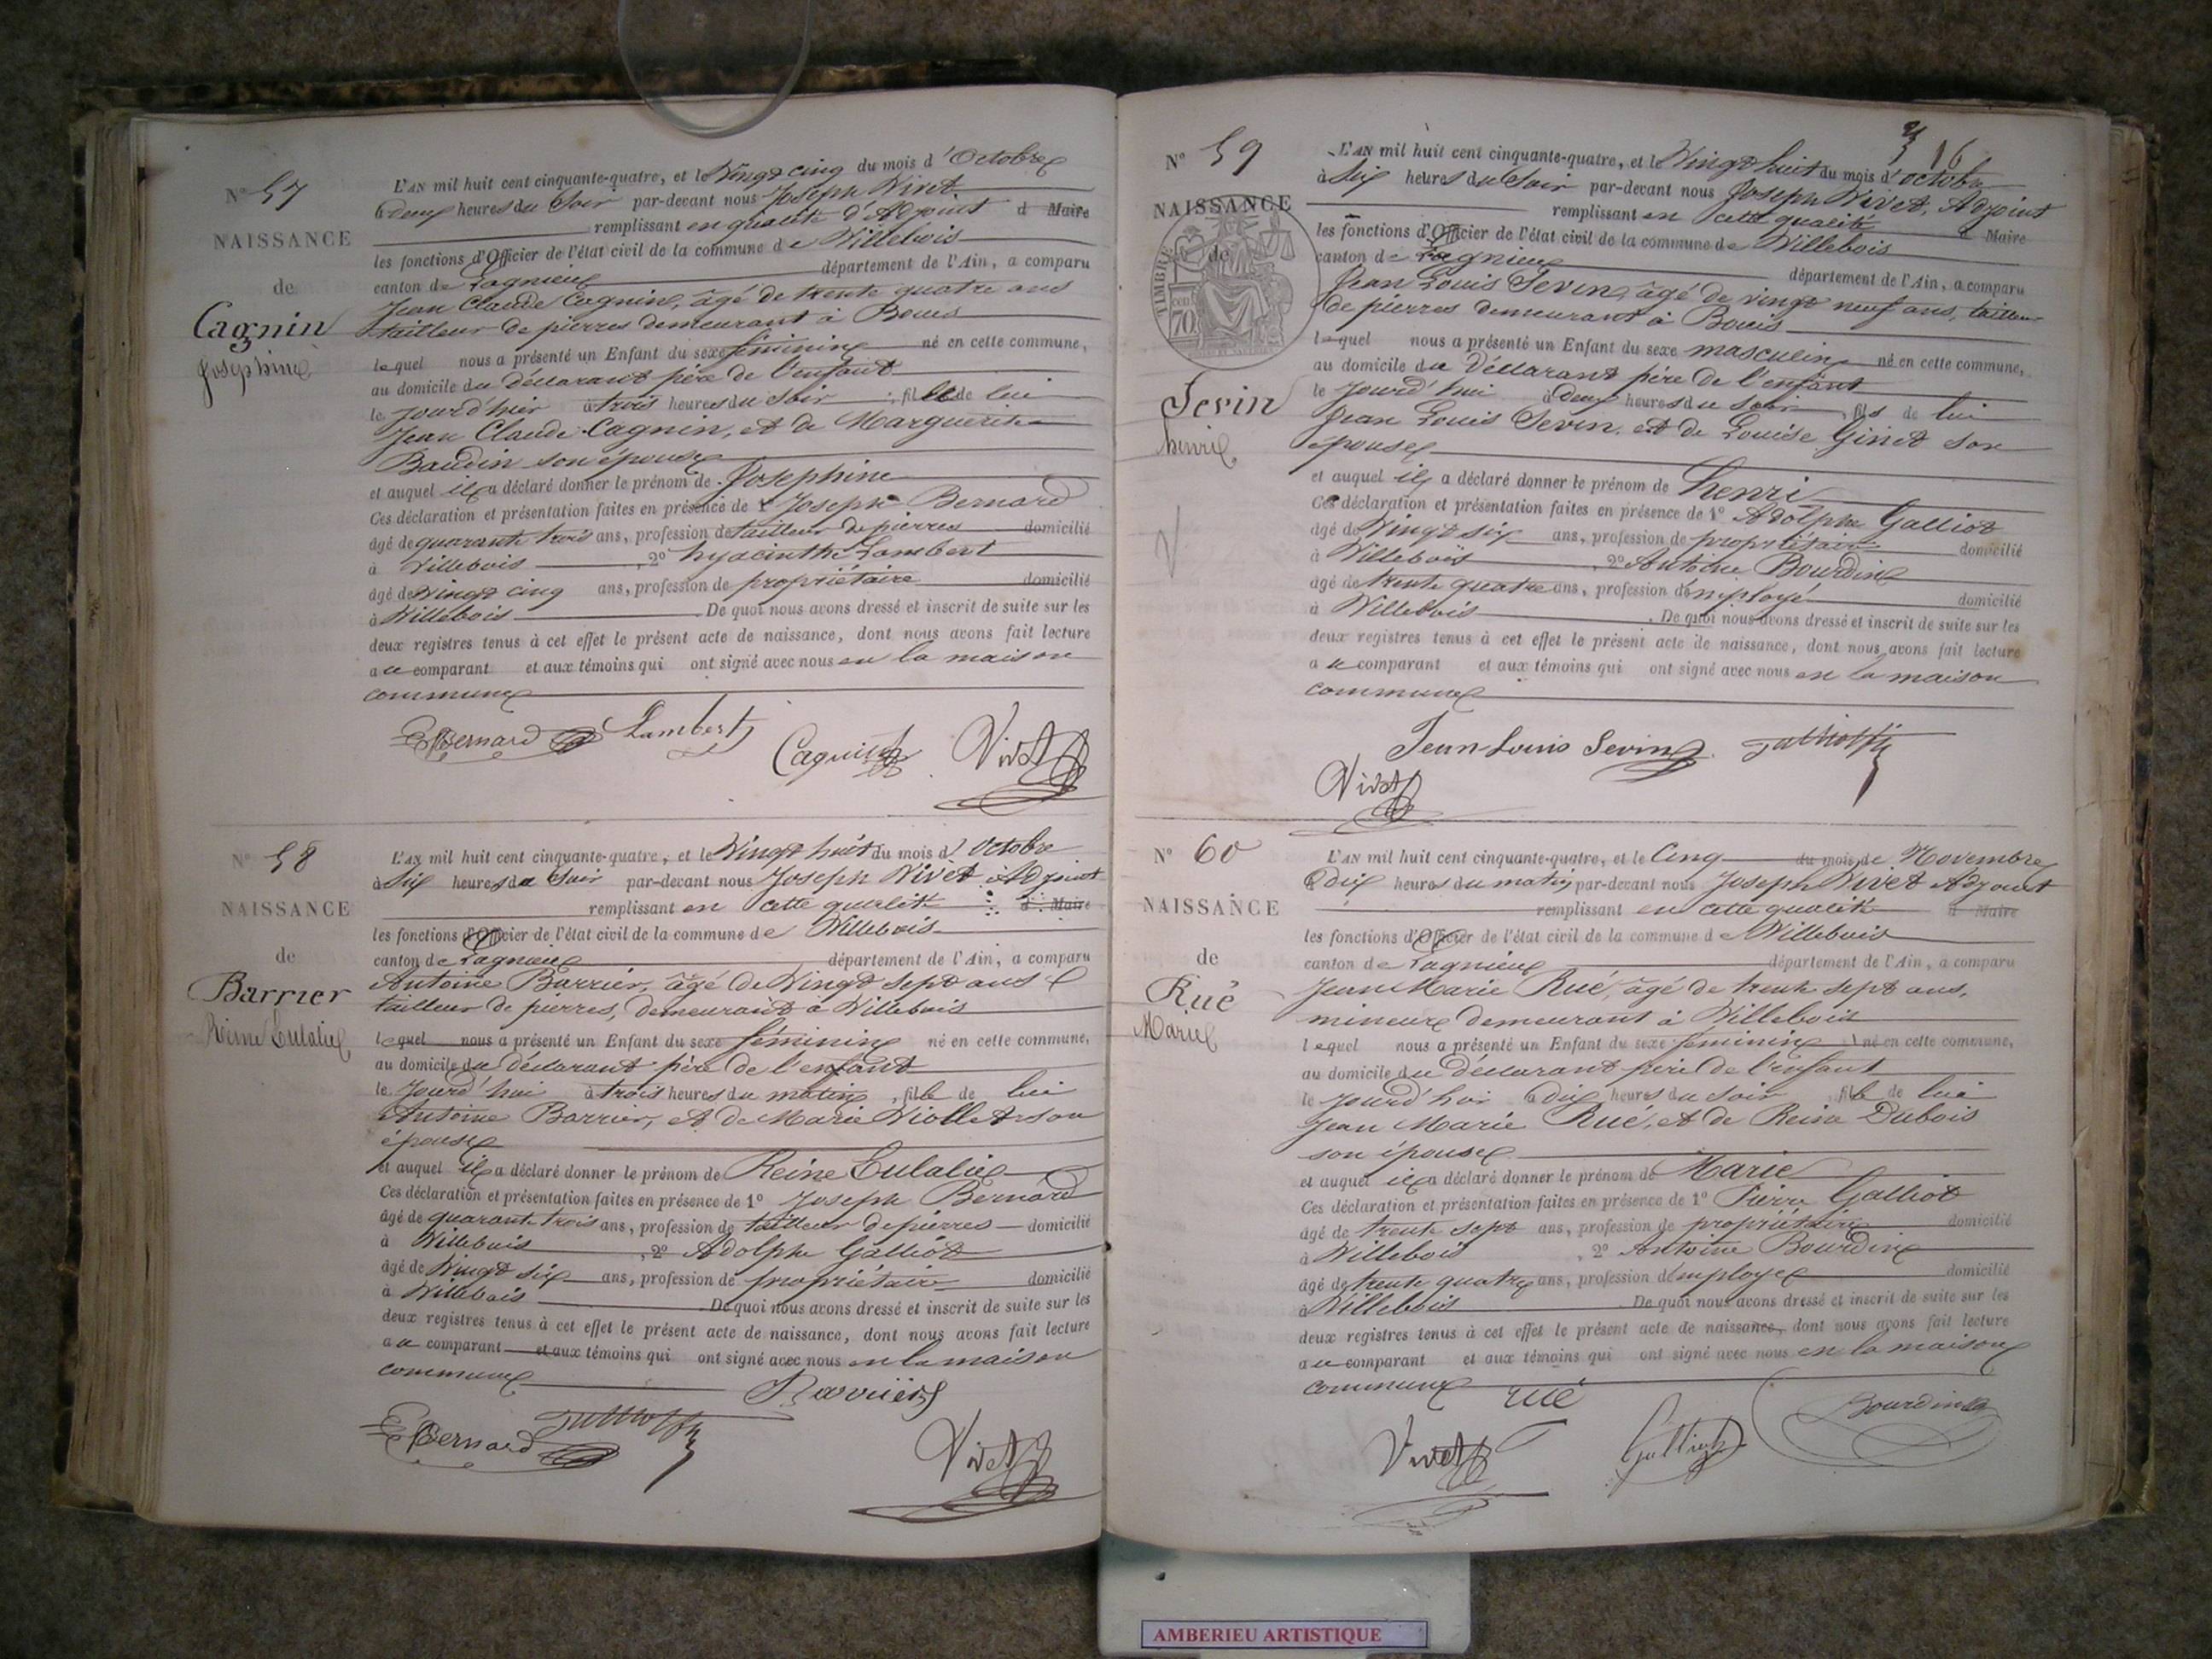 N° 57
NAISSANCE
de
Cagnin
Josephine
L'AN mil huit cent cinquante-quatre, et le Vingt cinq du mois d'Octobre
à deux heures du Soir par-devant nous Joseph Vivet
remplissant en qualité d'Adjoint d Maire
les fonctions d'Officier de l'état civil de la commune de Villebois
canton de Lagnieu département de l'Ain, a comparu
Jean Claude Cagnin, âgé de trente quatre ans
tailleur de pierres demeurant à Bouis
lequel nous a présenté un Enfant du sexe féminin né en cette commune,
au domicile du déclarant père de l'enfant
le jourd'hier à trois heures du Soir, fille de lui
Jean Claude Cagnin, et de Marguerite
Baudin son épouse
et auquel il a déclaré donner le prénom de Josephine
Ces déclaration et présentation faites en présence de 1° Joseph Bernard
âgé de quarante trois ans, profession de tailleur de pierres domicilié
à Villebois, 2° hyacinthe Lambert
âgé de Vingt cinq ans, profession de propriétaire domicilié
à Villebois. De quoi nous avons dressé et inscrit de suite sur les
deux registres tenus à cet effet le présent acte de naissance, dont nous avons fait lecture
au comparant et aux témoins qui ont signé avec nous en la maison
commune
Bernard Lambert Cagnin Vivet
N° 58
NAISSANCE
de
Barrier
Reine Eulalie
L'AN mil huit cent cinquante-quatre, et le Vingt huit du mois d'Octobre
à Six heures du Soir par-devant nous Joseph Vivet Adjoint
remplissant en cette qualité d Maire
les fonctions d'Officier de l'état civil de la commune de Villebois
canton de Lagnieu département de l'Ain, a comparu
Antoine Barrier, âgé de Vingt Sept ans
tailleur de pierres, demeurant à Villebois
lequel nous a présenté un Enfant du sexe féminin né en cette commune,
au domicile du déclarant père de l'enfant
le jourd'hui à trois heures du matin, fille de lui
Antoine Barrier, et de Marie Viollet son
épouse
et auquel il a déclaré donner le prénom de Reine Eulalie
Ces déclaration et présentation faites en présence de 1° Joseph Bernard
âgé de quarante trois ans, profession de tailleur de pierres domicilié
à Villebois, 2° Adolphe Galliot
âgé de Vingt six ans, profession de propriétaire domicilié
à Villebois De quoi nous avons dressé et inscrit de suite sur les
deux registres tenus à cet effet le présent acte de naissance, dont nous avons fait lecture
au comparant et aux témoins qui ont signé avec nous en la maison
commune
Barrier
Bernard Vivet
16
N° 59
NAISSANCE
de
TIMBRE
70
Sevin
henri
L'AN mil huit cent cinquante-quatre, et le Vingt huit du mois d'octobre
à Six heures du Soir par-devant nous Joseph Vivet, Adjoint
remplissant en cette qualité d Maire
les fonctions d'Officier de l'état civil de la commune de Villebois
canton de Lagnieu département de l'Ain, a comparu
Jean Louis Sevin, âgé de vingt neuf ans, tailleur
de pierres demeurant à Bouis
lequel nous a présenté un Enfant du sexe masculin né en cette commune,
au domicile du Déclarant père de l'enfant
le jourd'hui à deux heures du soir, fils de lui
Jean Louis Sevin et de Louise Ginet son
épouse
et auquel il a déclaré donner le prénom de henri
Ces déclaration et présentation faites en présence de 1° Adolphe Galliot
âgé de Vingt six ans, profession de propriétaire domicilié
à Villebois, 2° Antoine Bourdin
âgé de trente quatre ans, profession d'employé domicilié
à Villebois. De quoi nous avons dressé et inscrit de suite sur les
deux registres tenus à cet effet le présent acte de naissance, dont nous avons fait lecture
au comparant et aux témoins qui ont signé avec nous en la maison
commune
Jean Louis Sevin
Vivet
N° 60
NAISSANCE
de
Rué
Marie
L'AN mil huit cent cinquante-quatre, et le Cinq du mois de Novembre
à dix heures du matin par-devant nous Joseph Vivet Adjoint
remplissant en cette qualité d Maire
les fonctions d'Officier de l'état civil de la commune de Villebois
canton de Lagnieu département de l'Ain, a comparu
Jean Marie Rué, âgé de trente sept ans,
mineur demeurant à Villebois
lequel nous a présenté un Enfant du sexe féminin né en cette commune,
au domicile du déclarant père de l'enfant
le jourd'hier à dix heures du soir fille de lui
Jean Marie Rué, et de Reine Dubois
son épouse
et auquel il a déclaré donner le prénom de Marie
Ces déclaration et présentation faites en présence de 1° Pierre Galliot
âgé de trente sept ans, profession de propriétaire domicilié
à Villebois, 2° Antoine Bourdin
âgé de trente quatre ans, profession d'employé domicilié
à Villebois De quoi nous avons dressé et inscrit de suite sur les
deux registres tenus à cet effet le présent acte de naissance, dont nous avons fait lecture
au comparant et aux témoins qui ont signé avec nous en la maison
commune
rué
Vivet Galliot Bourdin
AMBERIEU ARTISTIQUE